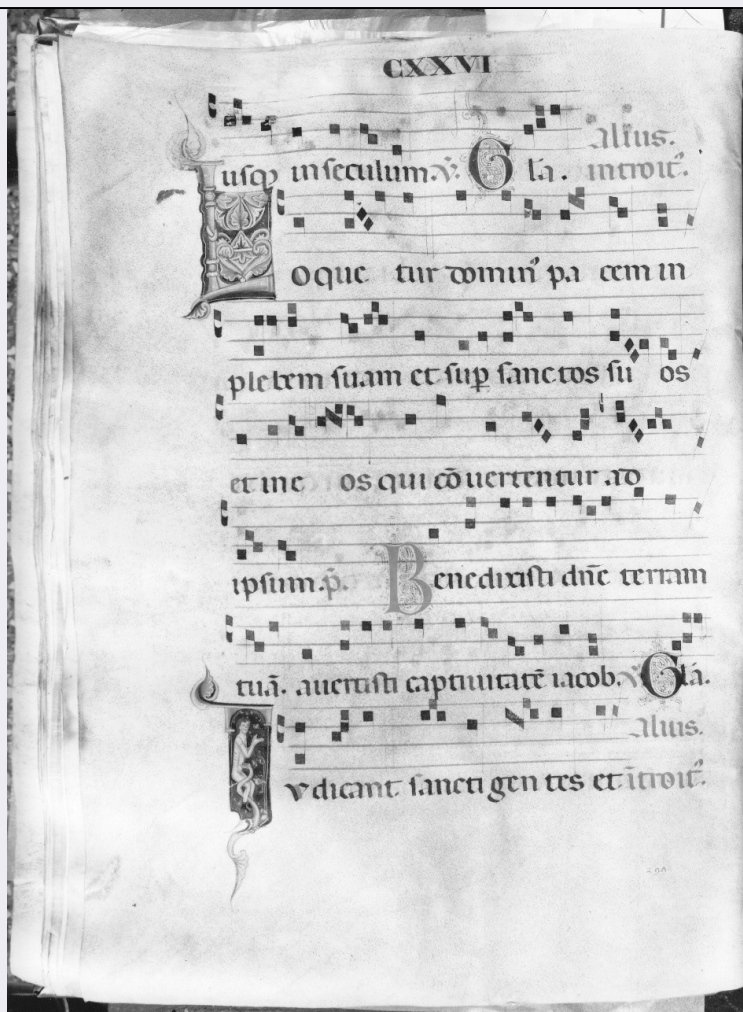 CXXVI
Alius.
usq̃ in seculum. ℣. Gl̃a. introit᷒.
Loque tur domin᷒ pa cem in
plebem suam et sup̱ sanctos su os
et in e os qui cõ uertentur ad
ipsum. p̃. Benedixisti dñe terram
tuã. auertisti captiuitatẽ iacob. ℣. Gl̃a.
Alius.
Iudicant sancti gen tes et ĩtroit᷒.